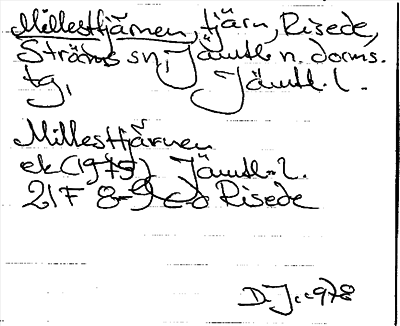 Millestjärnen, tjärn, Risede,
Ströms sn, Jämtl. n. doms.
tg, Jämtl. l.
Millestjärnen
ek (1975) Jämtl. l.
21F 8-9 Risede
D.J. 1978